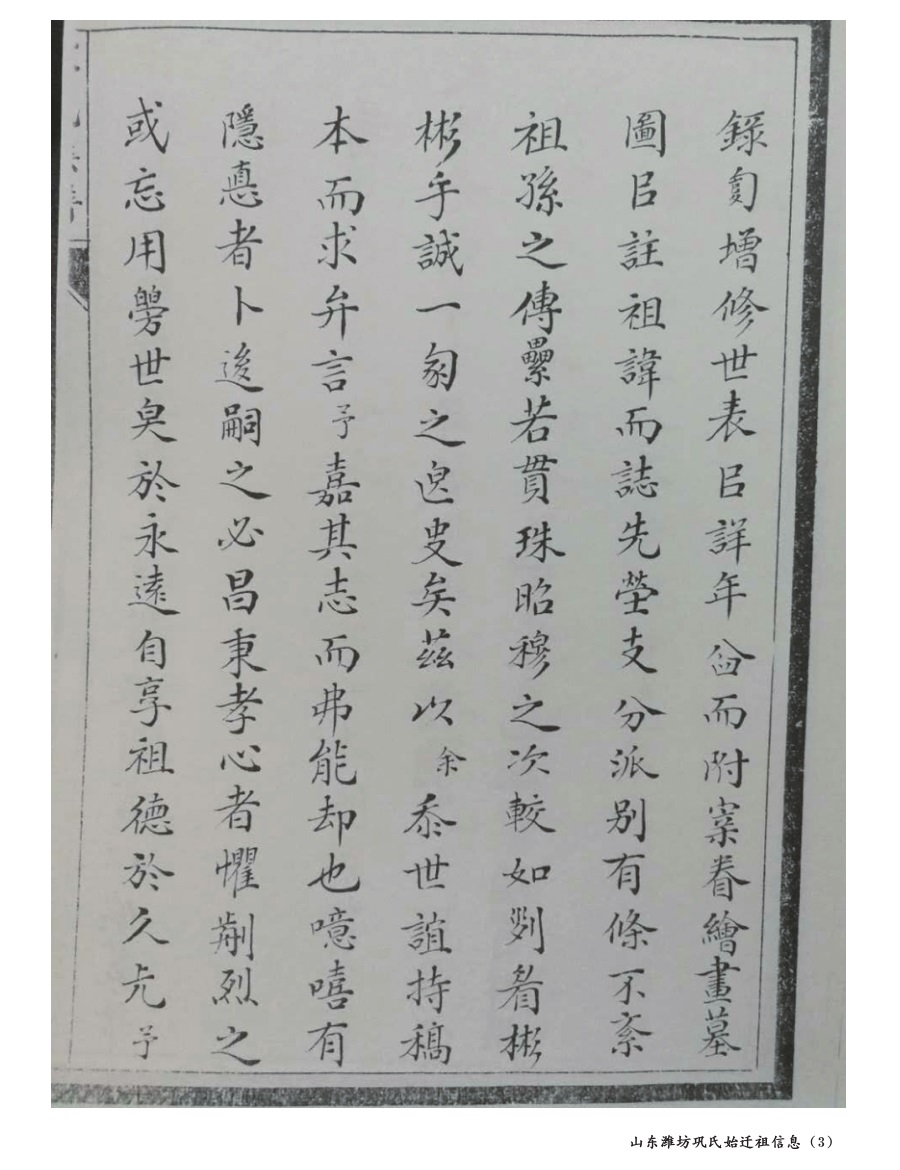 錄訇增修世表㠯詳年㒶而附寀眷繪畫墓
圖㠯註祖諱而誌先塋支分派别有條不紊
祖孫之傳纍若貫珠昭穆之次較如列眉彬
彬乎誠一匎之良史矣茲以余黍世誼持稿
本而求弁言予嘉其志而弗能却也噫嘻有
隱悳者卜後嗣之必昌秉孝心者懼前烈之
或忘用 世 於永遠自享祖德於久 予
山东潍坊巩氏始迁祖信息（3）